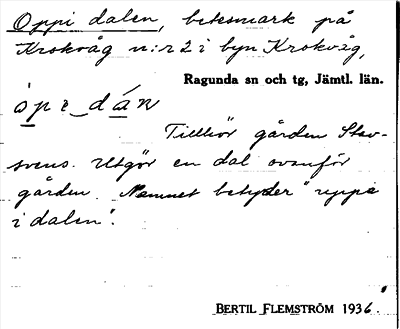 Oppi dalen, betesmark på
Krokvåg n:r 2 i byn Krokvåg,
Ragunda sn och tg, Jämtl. län.
òpi_dán
Tillhör gården Stav-
svens. Utgör en dal ovanför
gården. Namnet betyder "uppe
i dalen".
BERTIL FLEMSTRÖM 1936.